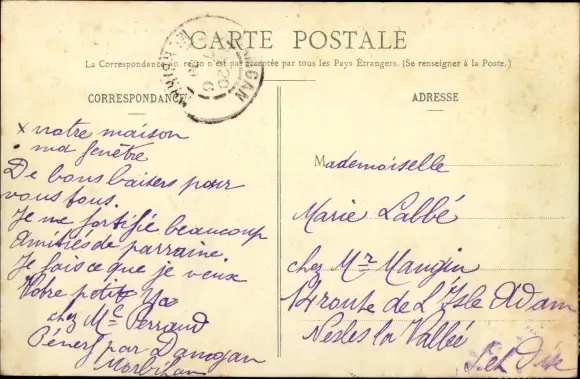 CARTE POSTALE
La Correspondance au recto n'est pas acceptée par tous les Pays Étrangers. (Se renseigner à la Poste.)
CORRESPONDANCE
x notre maison
. ma fenêtre
De bons baisers pour
vous tous.
Je me fortifie beaucoup
Amitiés de parraine.
Je fais ce que je veux
Votre petite Ya
chez Me Perraud
Pénerf par Damgan
Morbihan
ADRESSE
Mademoiselle
Marie Labbé
chez Mr Maugin
14 route de L'Isle Adam
Nesles la Vallée
S. et Oise
DAMGAN
MORBIHAN